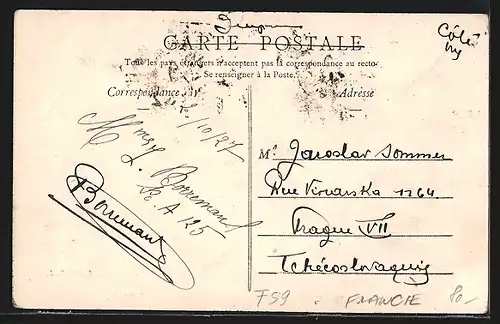 CARTE POSTALE
Tous les pays étrangers n'acceptent pas la correspondance au recto.
Se renseigner à la Poste.
Correspondance
Adresse
1/10/27
Borremans
A 125
Borremans
Mr Jaroslav Sommer
Rue 1264
Prague VII
Tchécoslovaquie
F59
FRANCIE
80.-